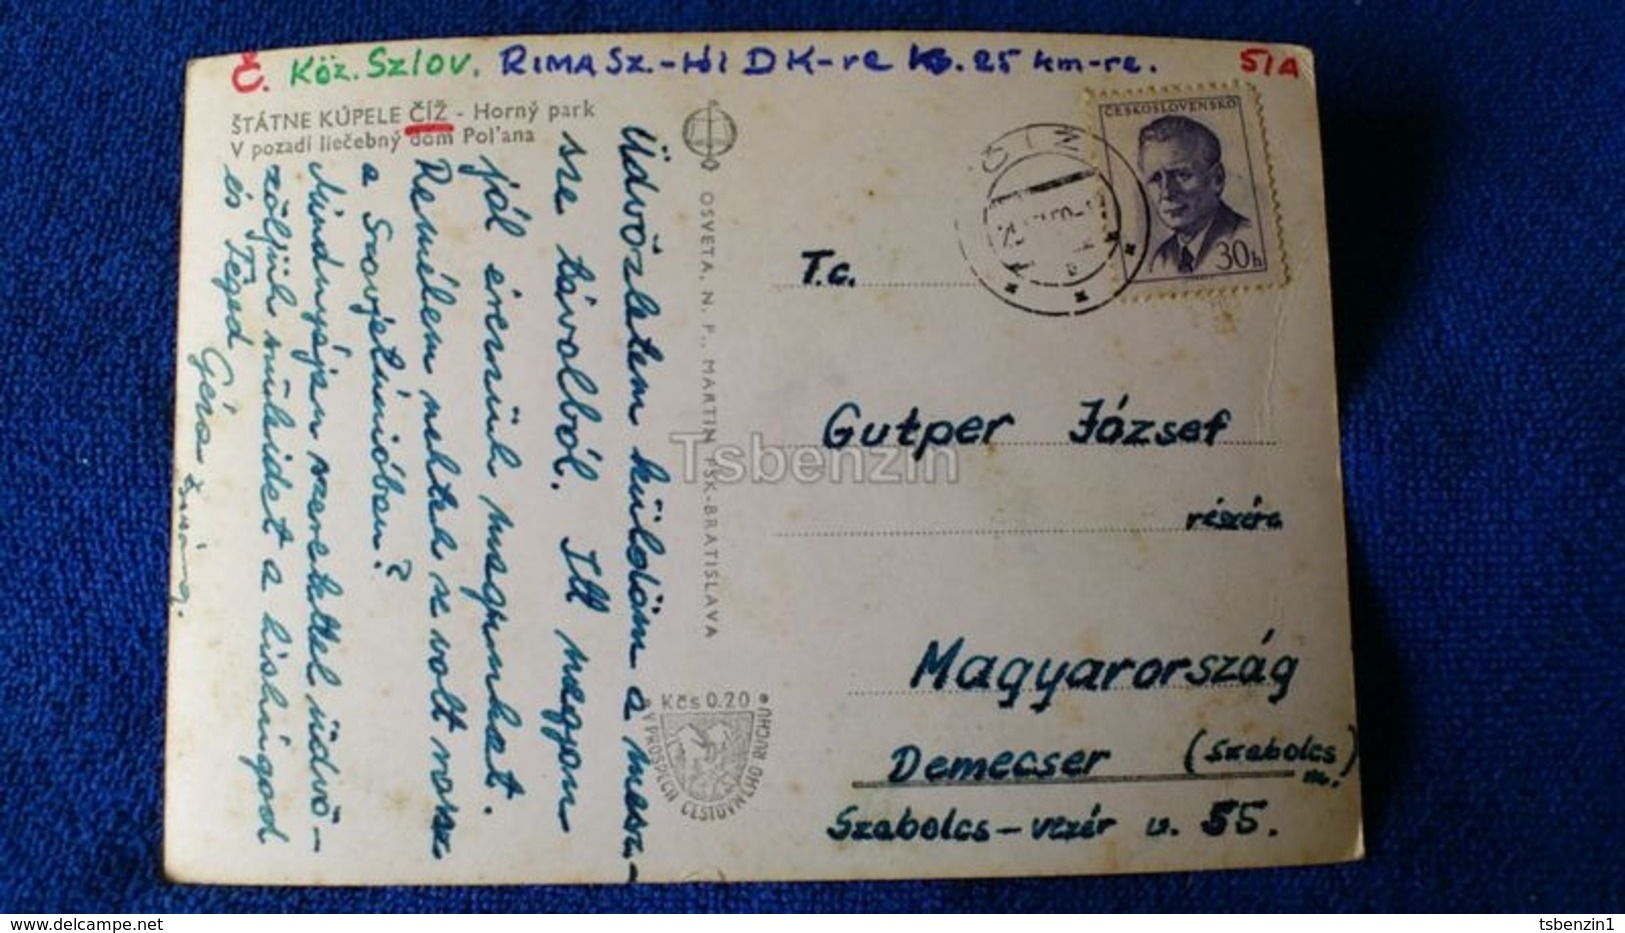 Č. Köz. Szlov. RIMASZ.-tól DK-re kb. 25 km-re. 51A
ŠTÁTNE KÚPELE ČÍŽ - Horný park
V pozadí liečebný dom Pol'ana
Üdvözletem küldöm a messze-
sze távolból. Itt nagyon
jól érezzük magunkat.
Remélem nektek sz volt rossz
a Szovjetúnióban?
Mindnyájan szeretettel üdvö-
zöljük szüleidet a kishúgod
és Téged
Géza
OSVETA, N. P., MARTIN FSK-BRATISLAVA
Kčs 0.20
V PROSPECH CESTOVNÉHO RUCHU
ČESKOSLOVENSKO
30h
ČÍŽ
T.c.
Gutper József
részére
Magyarország
Demecser (Szabolcs
m.)
Szabolcs-vezér u. 55.
Tsbenzin
delcampe.net
tsbenzin1